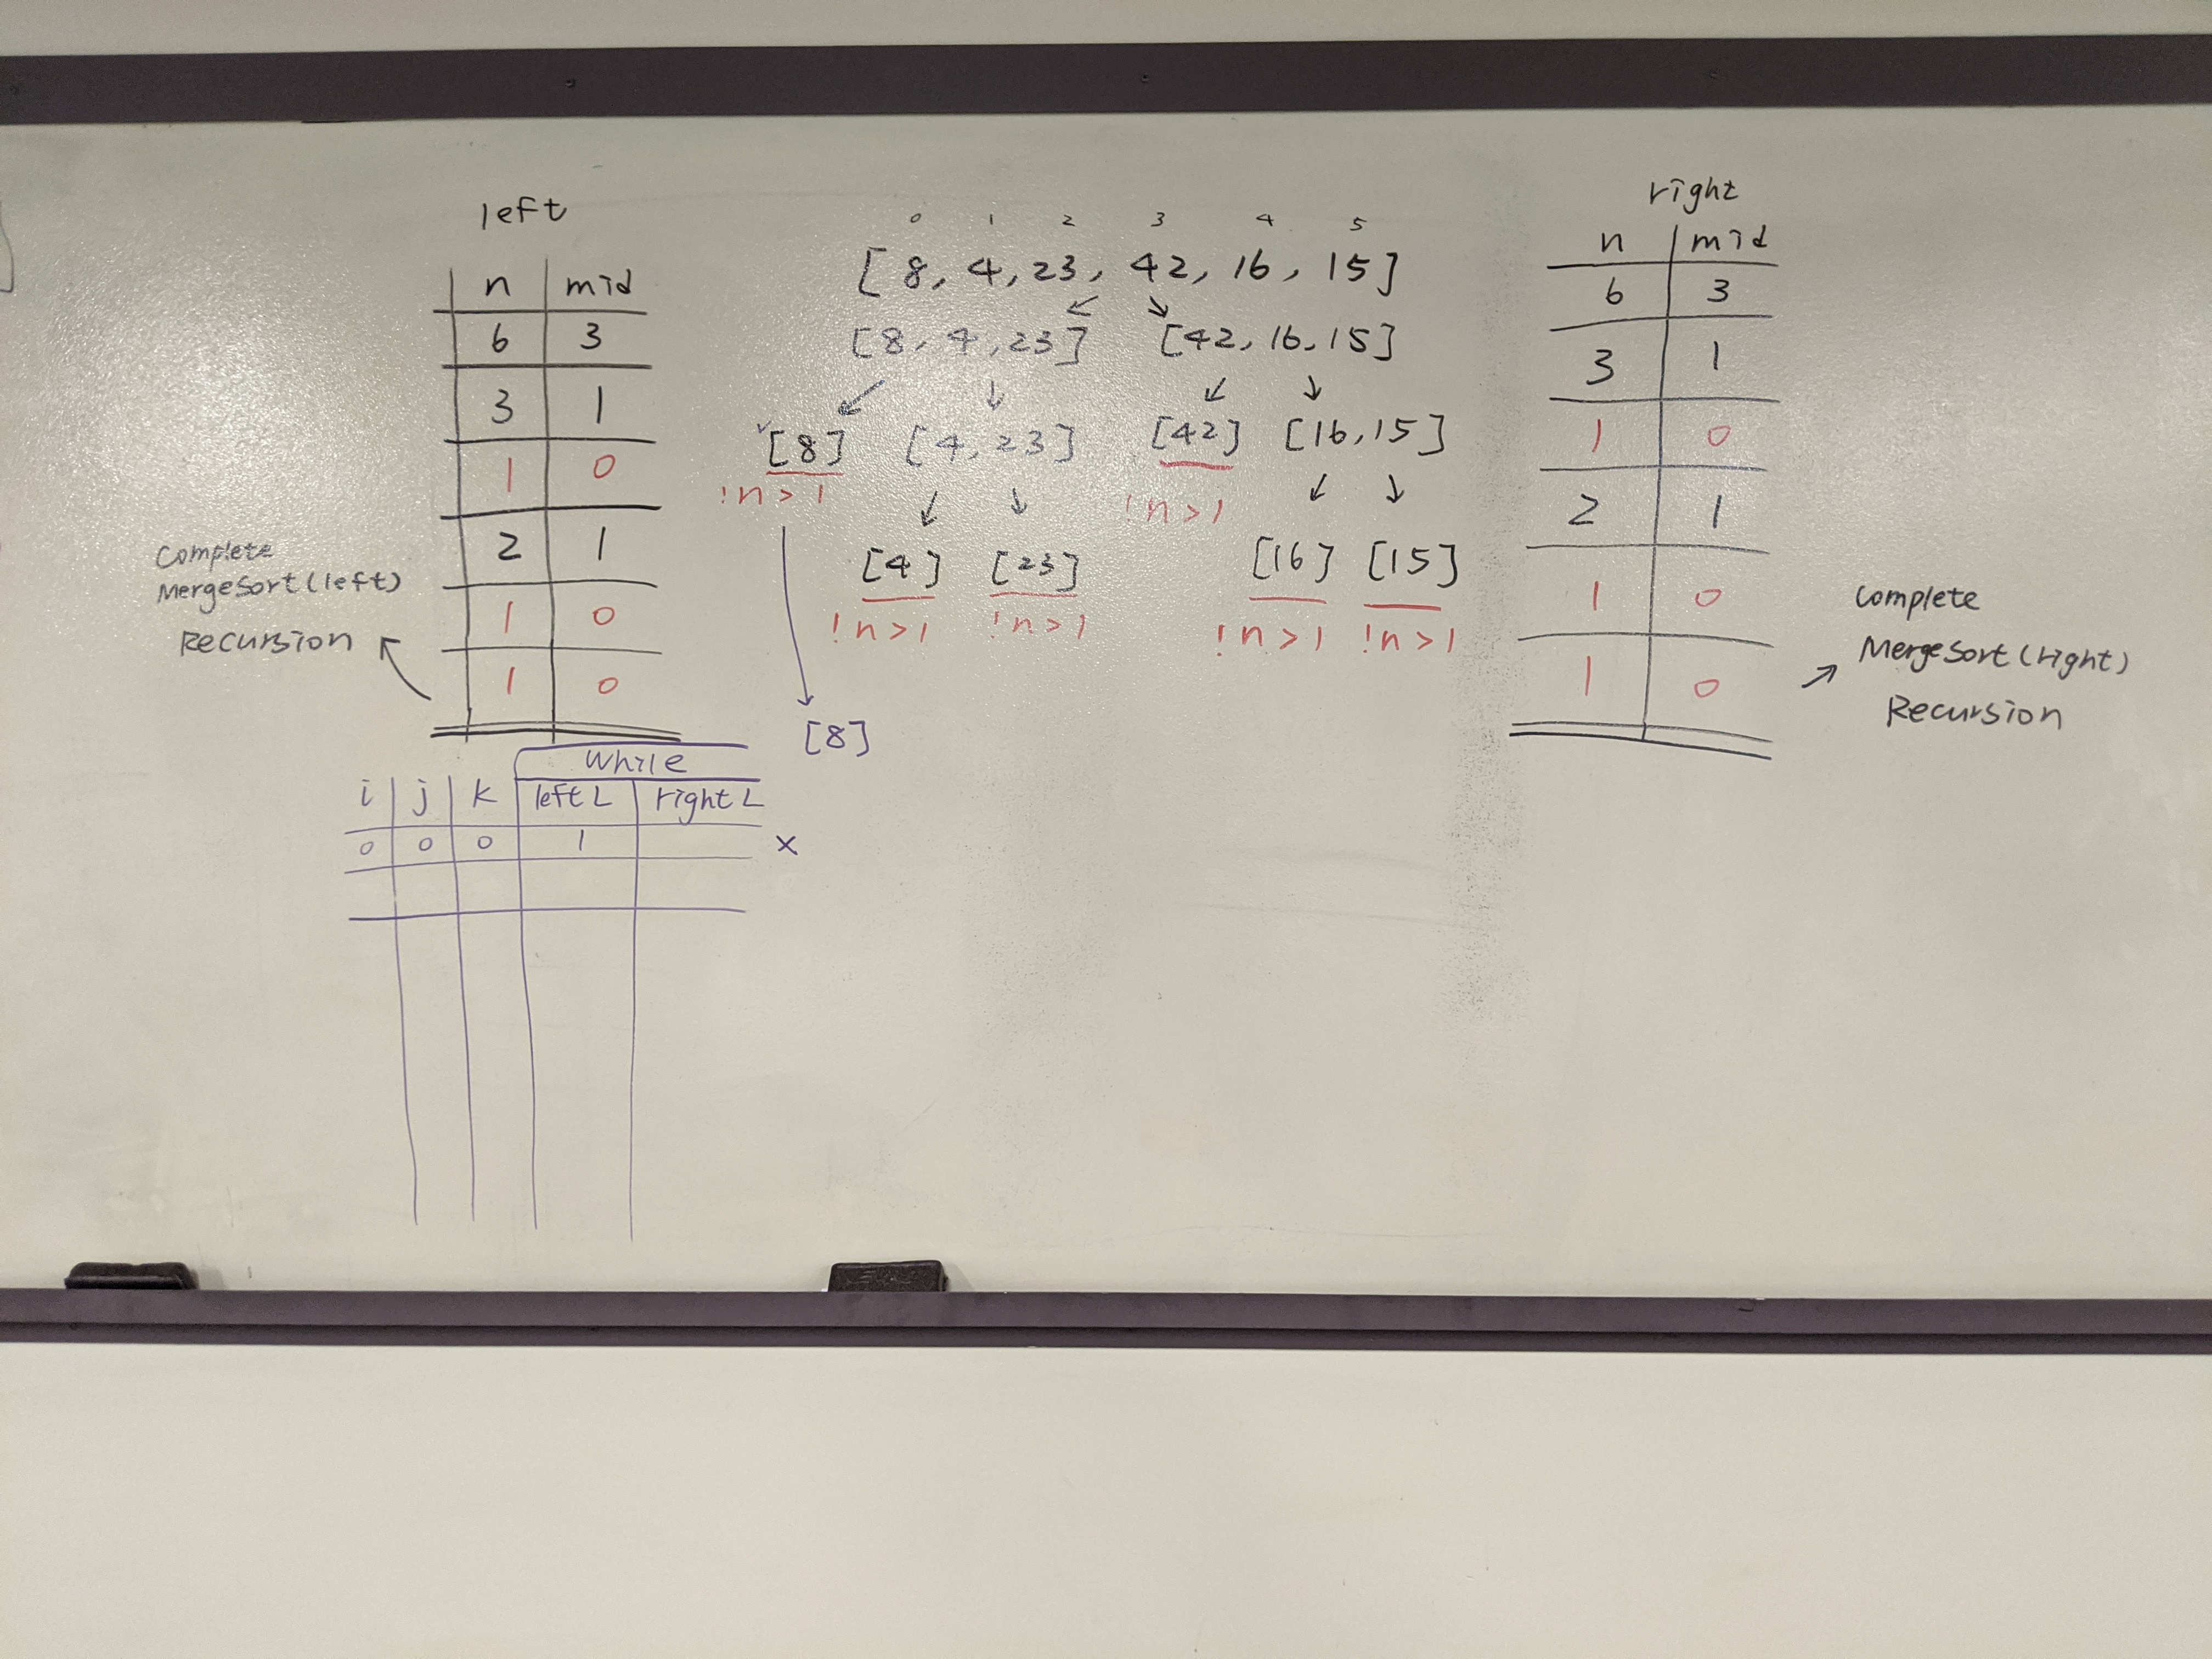 left
n mid
6 3
3 1
1 0
2 1
1 0
1 0
Complete
MergeSort(left)
Recursion
0 1 2 3 4 5
[8, 4, 23, 42, 16, 15]
[8, 4, 23] [42, 16, 15]
[8] [4, 23] [42] [16, 15]
!n>1 !n>1
[4] [23] [16] [15]
!n>1 !n>1 !n>1 !n>1
[8]
right
n mid
6 3
3 1
1 0
2 1
1 0
1 0
Complete
MergeSort(right)
Recursion
while
i j k left L right L
0 0 0 1 x